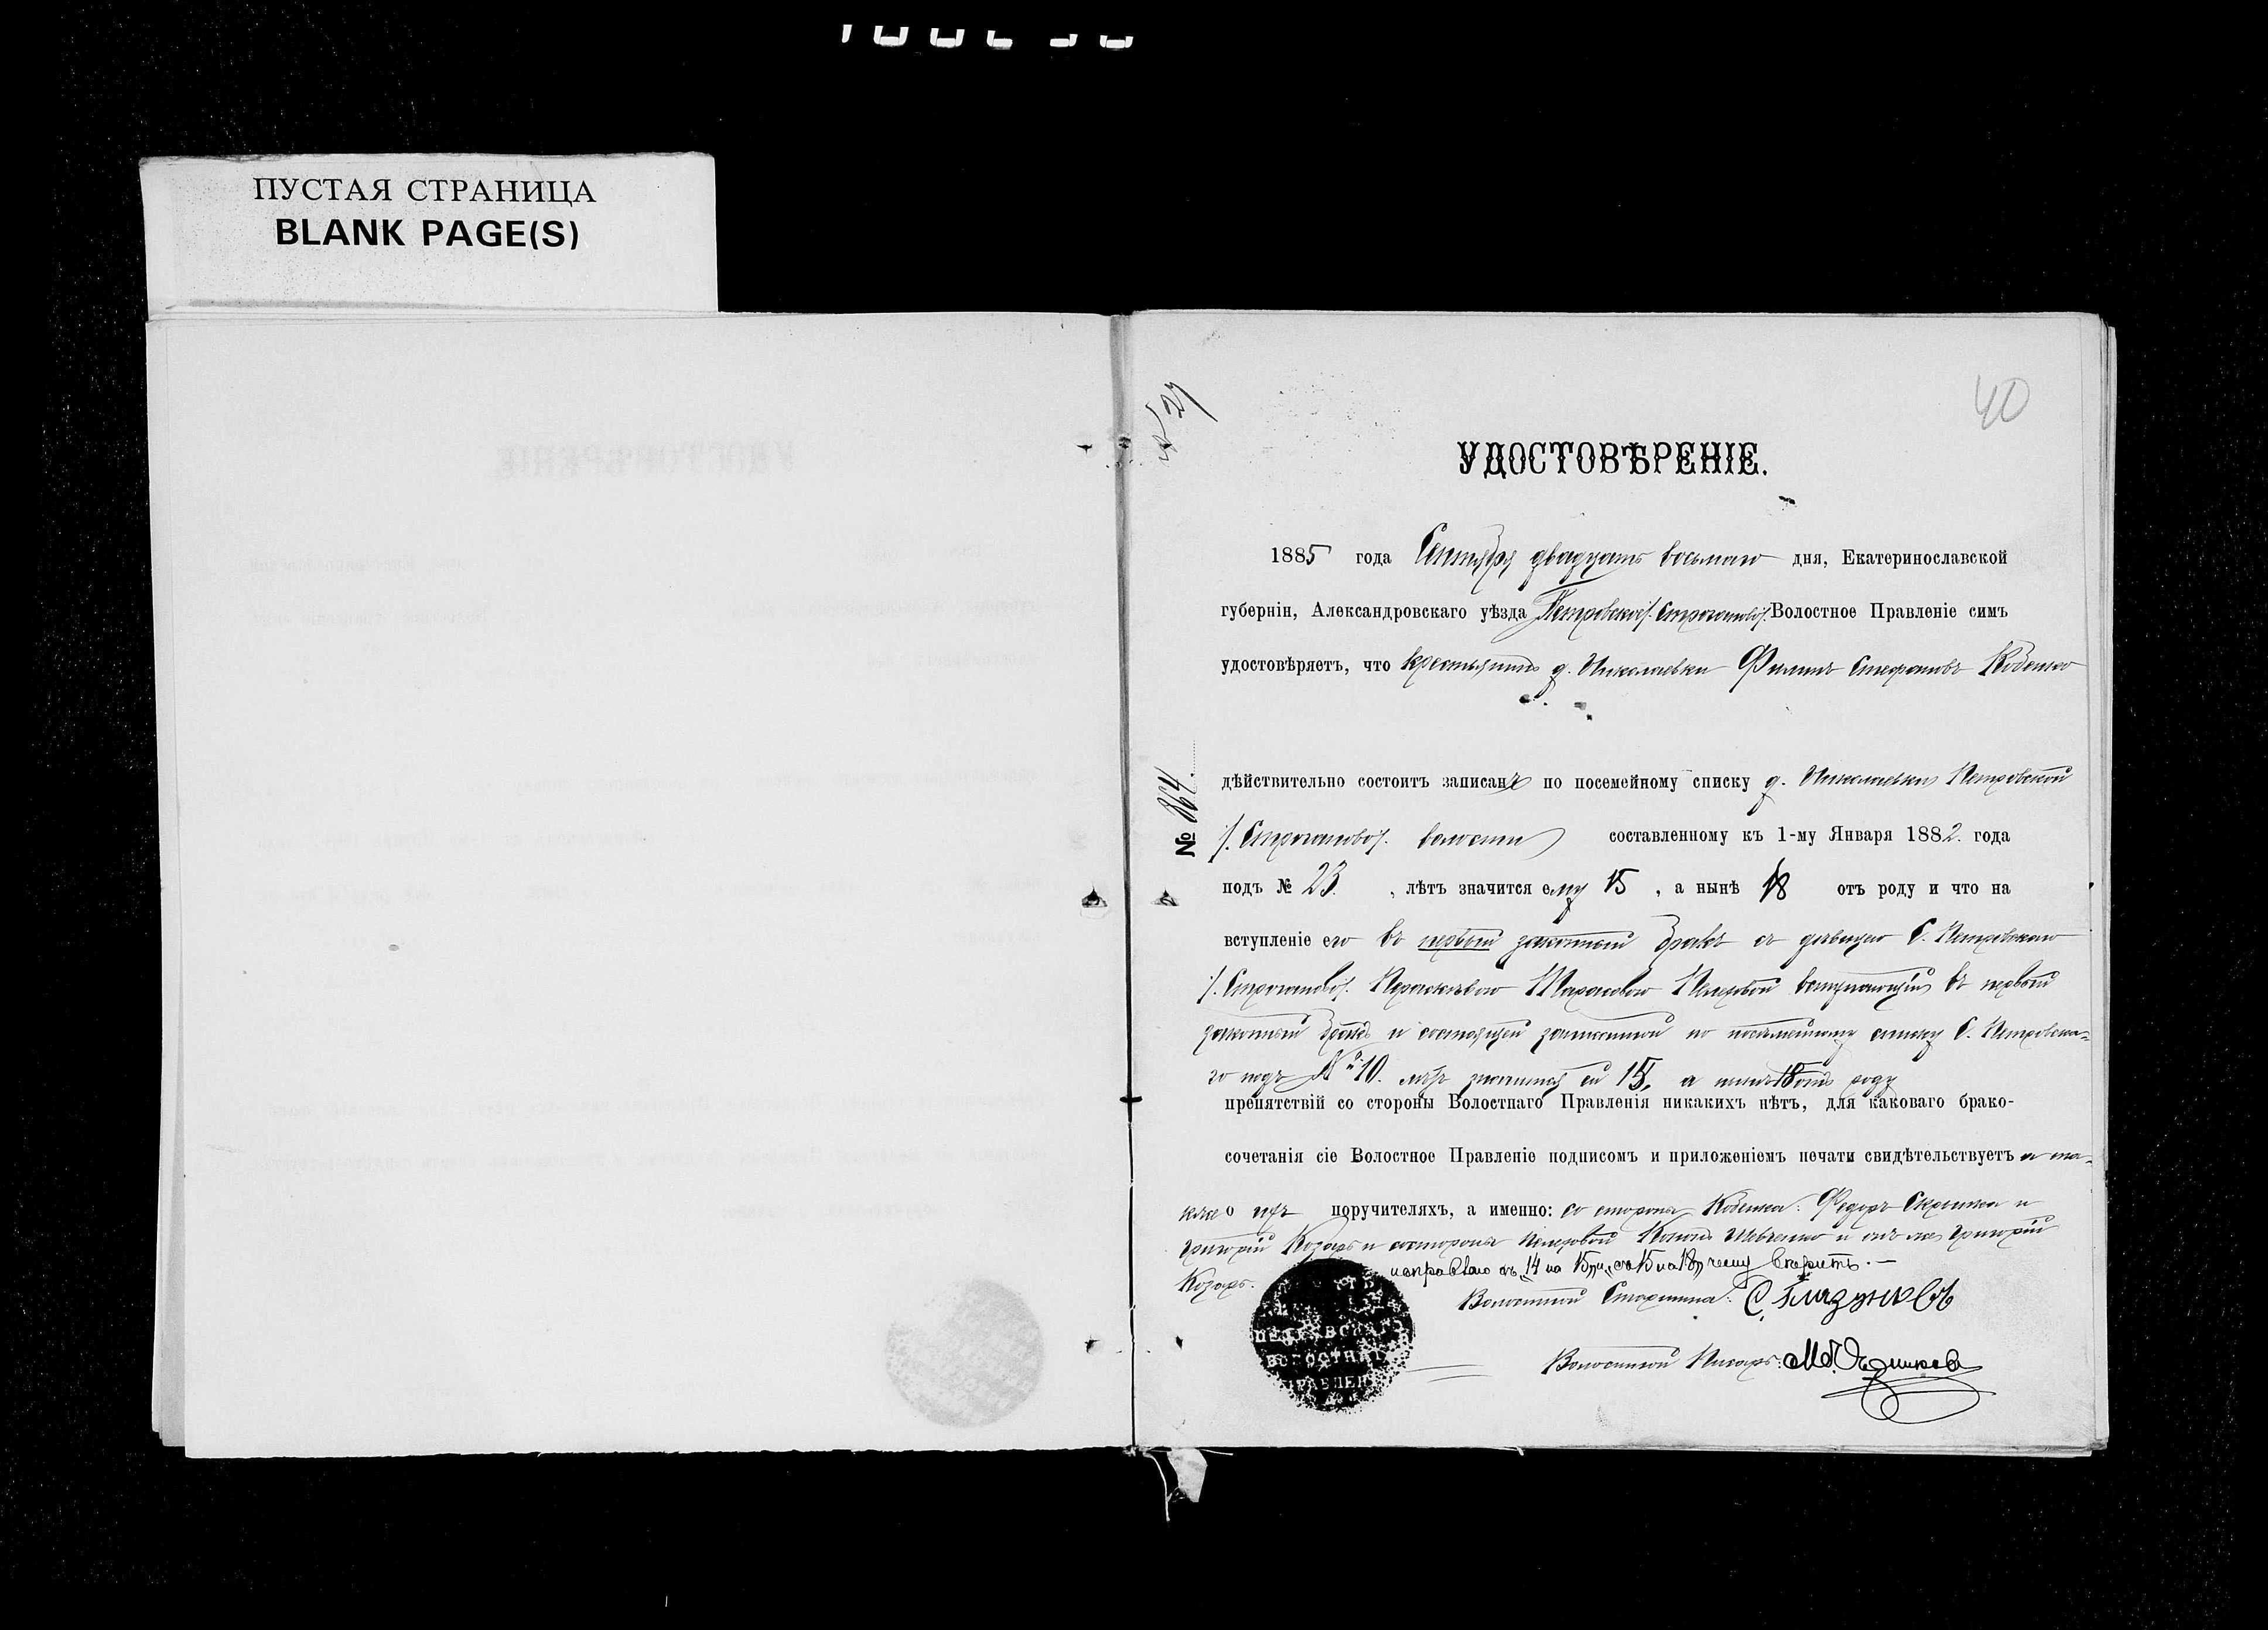 ПУСТАЯ СТРАНИЦА
BLANK PAGE(S)
40
УДОСТОВѢРЕНІЕ.
1885 года Сентября двадцать восьмого дня, Екатеринославской
губерніи, Александровскаго уѣзда Петровское /.Строганово/. Волостное Правленіе симъ
удостовѣряетъ, что крестьянинъ д. Николаевки Филипъ Стефановъ Кобенко
№ 864.
дѣйствительно состоитъ записанъ по посемейному списку д. Николаевки Петровской
/.Строгановой/. волости составленному къ 1-му Января 1882. года
подъ № 23. , лѣтъ значится ему 15 , а нынѣ 18 отъ роду и что на
вступленіе его въ первый законный бракъ съ дѣвицею С. Петровскаго
/.Строганово/. Параскѣвою Тарасовою вступающей въ первый
законный бракъ и состоящей записанной по посемейному списку С. Петровска-
го подъ № 10. лѣтъ значится ей 15, а нынѣ 18 отъ роду
препятствій со стороны Волостнаго Правленія никакихъ нѣтъ, для каковаго брако-
сочетанія сіе Волостное Правленіе подписомъ и приложеніемъ печати свидѣтельствуетъ а та-
кже о ихъ поручителяхъ, а именно: со стороны Кобенка: Федоръ и
Григорій Козарь и состороны Кононъ Шевченко и онъ же Григорій
Козарь. исправлено съ „14 на 15„ и „съ 15 на 18„ чему верить. —
Волостной Старшина: С. Глазуновъ
Волостной Писарь:
ПЕТРОВСКАГО
ВОЛОСТНАГО
ПРАВЛЕНІЯ